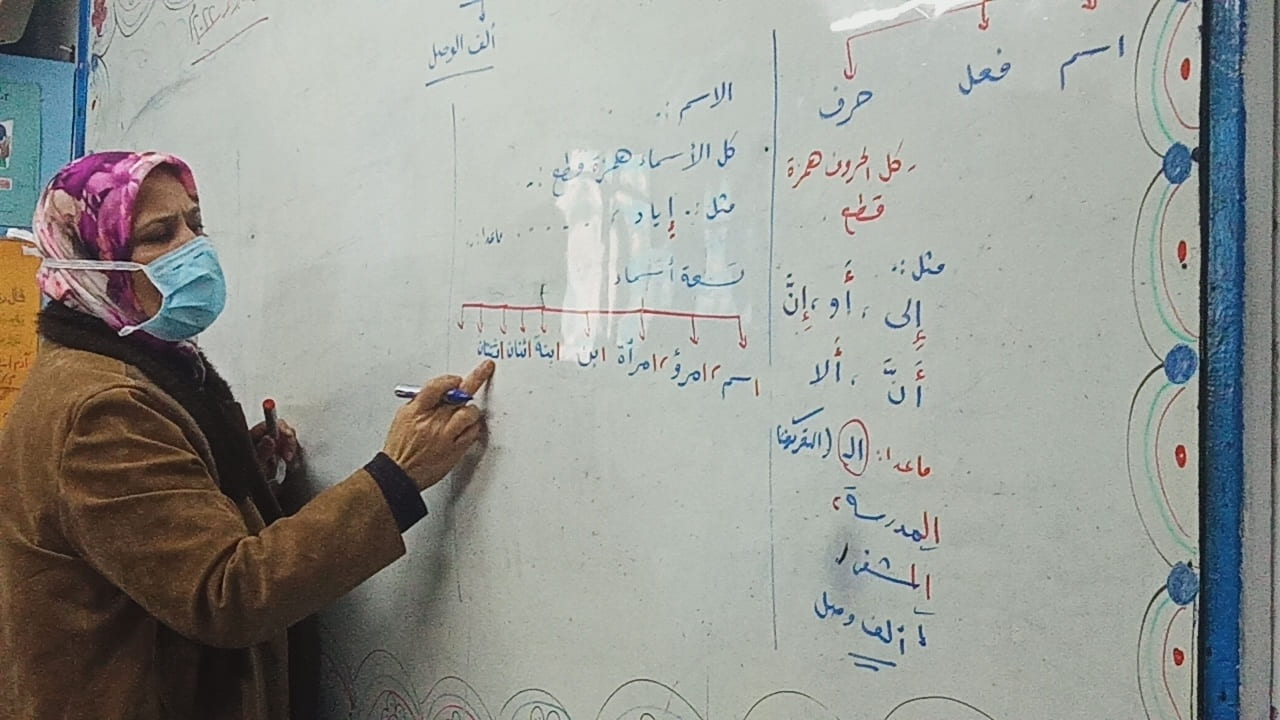 اسم فعل حرف
كل الحروف همزة
قطع
مثل :
إلى ، أو ، إنَّ
أَنَّ ، ألا
ماعدا : الـ (التعريف)
المدرسة ،
المشفى
ألف وصل
ألف الوصل
الاسم :
كل الأسماء همزة قطع :
مثل : إياد ، ..... ماعدا :
تسعة أسماء
اسم ، امرؤ ، امرأة ، ابن ابنة اثنان اثنتان
قال